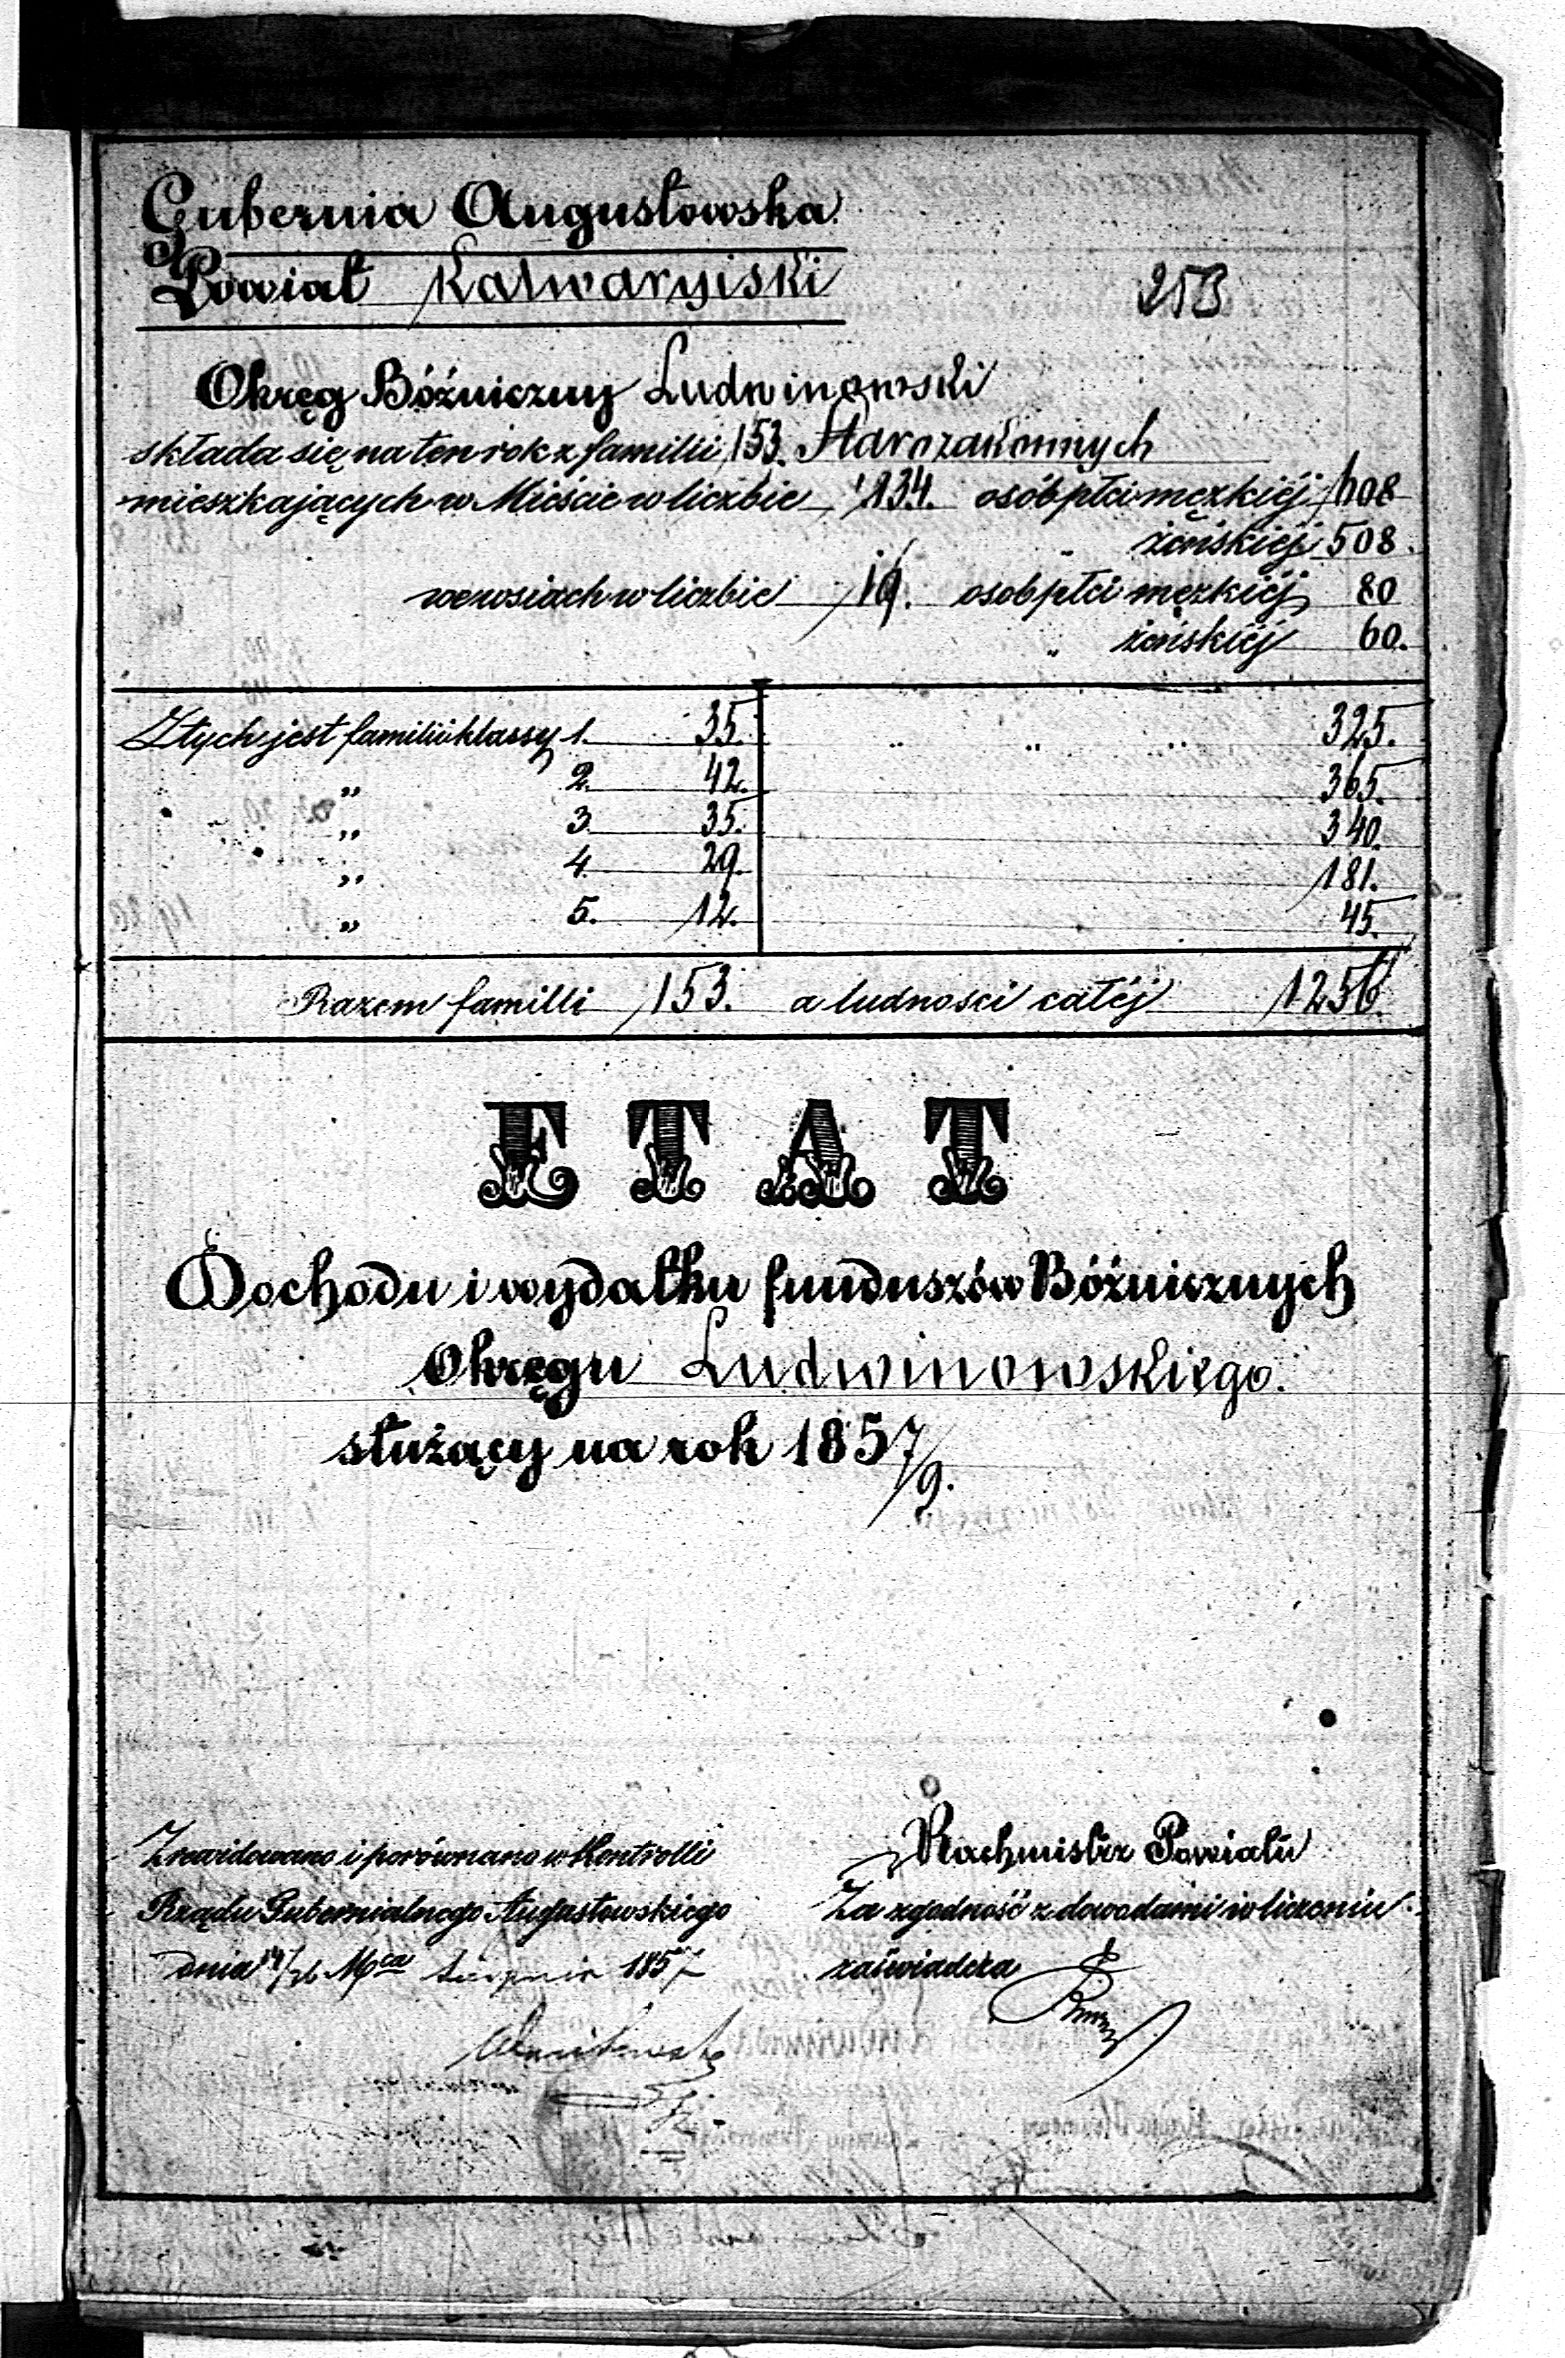 Gubernia Augustowska
Powiat Kalwaryiski
253
Okręg Bóźniczny Ludwinowski
składa się na ten rok z familii 153. Starozakonnych
mieszkających w Mieście w liczbie 134. osób płci męzkiéj 608
„ żeńskiéj 508.
we wsiach w liczbie 19. osob płci męzkiéj 80
„ żeńskiéj 60.
Z tych jest familii klassy 1. 35. „ „ „ 325.
„ 2. 42. 365.
„ 3 35. 340.
„ 4. 29. 181.
„ 5. 12. 45.
Razem familli 153. a ludności całéj 1256.
ETAT
Dochodu i wydatku funduszów Bóźnicznych
Okręgu Ludwinowskiego.
służący na rok 1857/9.
Zrewidowano i porównano w Kontrolli
Rządu Gubernialnego Augustowskiego
dnia 14/26 Mca Sierpnia 1857
Rachmistrz Powiatu
Za zgodność z dowodami i w liczeniu
zaświadcza